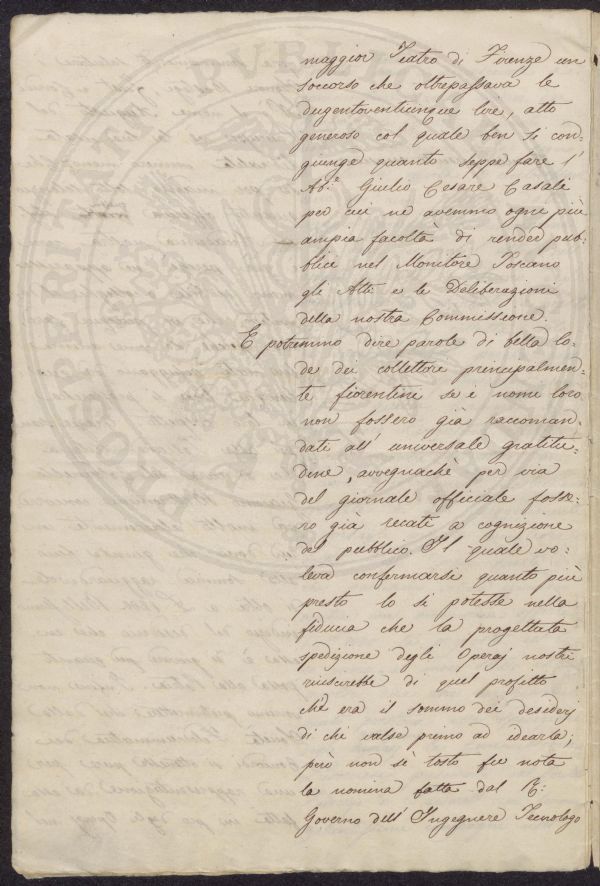 maggior Teatro di Firenze un
soccorso che oltrepassava le
dugentoventicinque lire, atto
generoso col quale ben si con-
giunge quanto seppe fare l'
Ab.e Giulio Cesare Casali
per cui ne avemmo ogni più
ampia facoltà di render pub-
blici nel Monitore Toscano
gli Atti e le Deliberazioni
della nostra Commissione.
E potremmo dire parole di bella lo-
de dei collettori principalmen-
te fiorentini se i nomi loro
non fossero già raccoman-
dati all' universale gratitu-
dine, avvegnachè per via
del giornale officiale fosse-
ro già recati a cognizione
del pubblico. Il quale vo-
leva confermarsi quanto più
presto lo si potesse nella
fiducia che la progettata
spedizione degli Operaj nostri
riuscirebbe di quel profitto
che era il sommo dei desiderj
di chi valse primo ad idearla;
però non sì tosto fu nota
la nomina fatta dal R.
Governo dell' Ingegnere Tecnologo
PROSPERITATE PVB